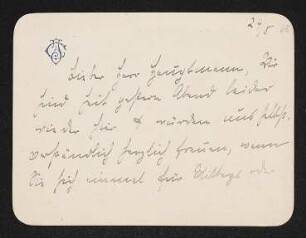 24/5
Lieber Herr Hauptmann, Wir
sind seit gestern Abend leider
wieder hier & würden uns selbst-
verständlich herzlich freuen, wenn
Sie sich einmal für Mittags oder